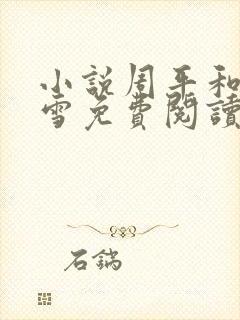 小說周平和
雪免費閱讀
石鍋